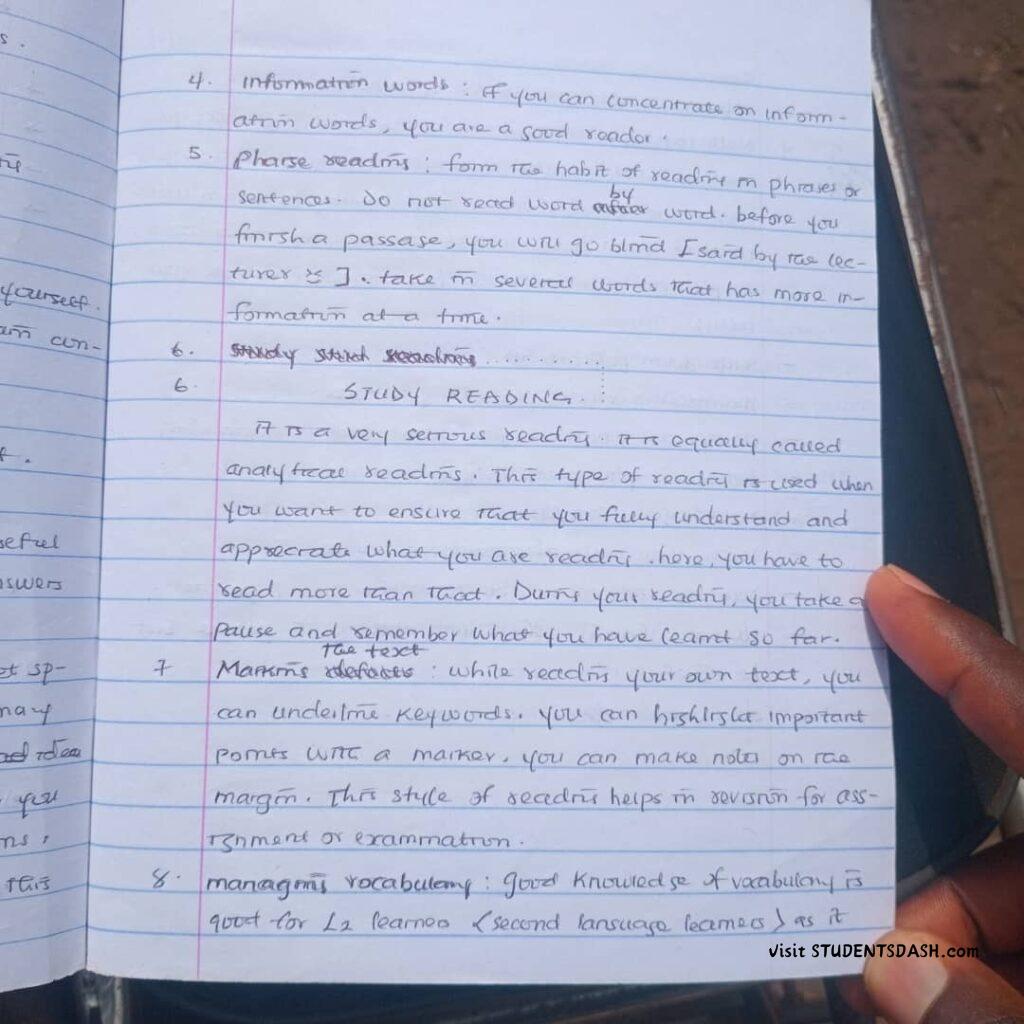 s.
yourself.
am con-
f.
seful
nswers
ot sp-
nary
ad idea
you
ns,
this
4. Information words : if you can concentrate on inform-
ation words, you are a good reador.
5. Pharse reading : form the habit of reading in phrases or
sentences. Do not read word by word. before you
finish a passage, you will go blind [said by the lec-
turer ]. take in several words that has more in-
formation at a time.
6. study reading ............
6. STUDY READING.
it is a very serious reading. it is equally called
analytical reading. This type of reading is used when
you want to ensure that you fully understand and
appreciate what you are reading. here, you have to
read more than that. During your reading, you take a
pause and remember what you have learnt so far.
7 Marking the text : while reading your own text, you
can underline keywords. you can highlight important
points with a marker. you can make notes on the
margin. This style of reading helps in revision for ass-
ignment or examination.
8. managing vocabulary : good knowledge of vocabulary is
good for L2 learnes (second language learners) as it
visit STUDENTSDASH.com